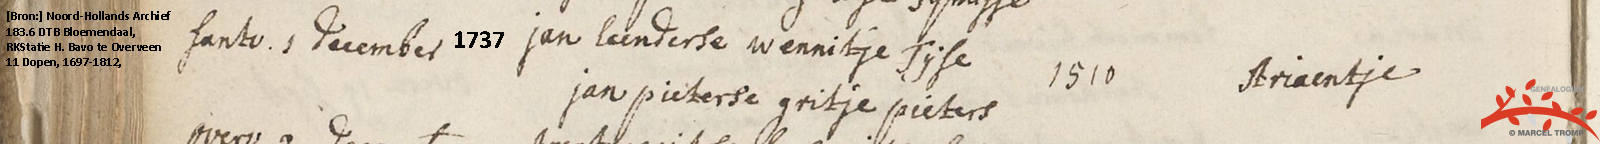 [Bron:] Noord-Hollands Archief
183.6 DTB Bloemendaal,
RKStatie H. Bavo te Overveen
11 Dopen, 1697-1812,
santv. 1 december 1737 jan leenderse wennitje Tijse
jan pieterse gritje pieters 1510 Ariaentje
overv. 2
GENEALOGIE
© MARCEL TROMP